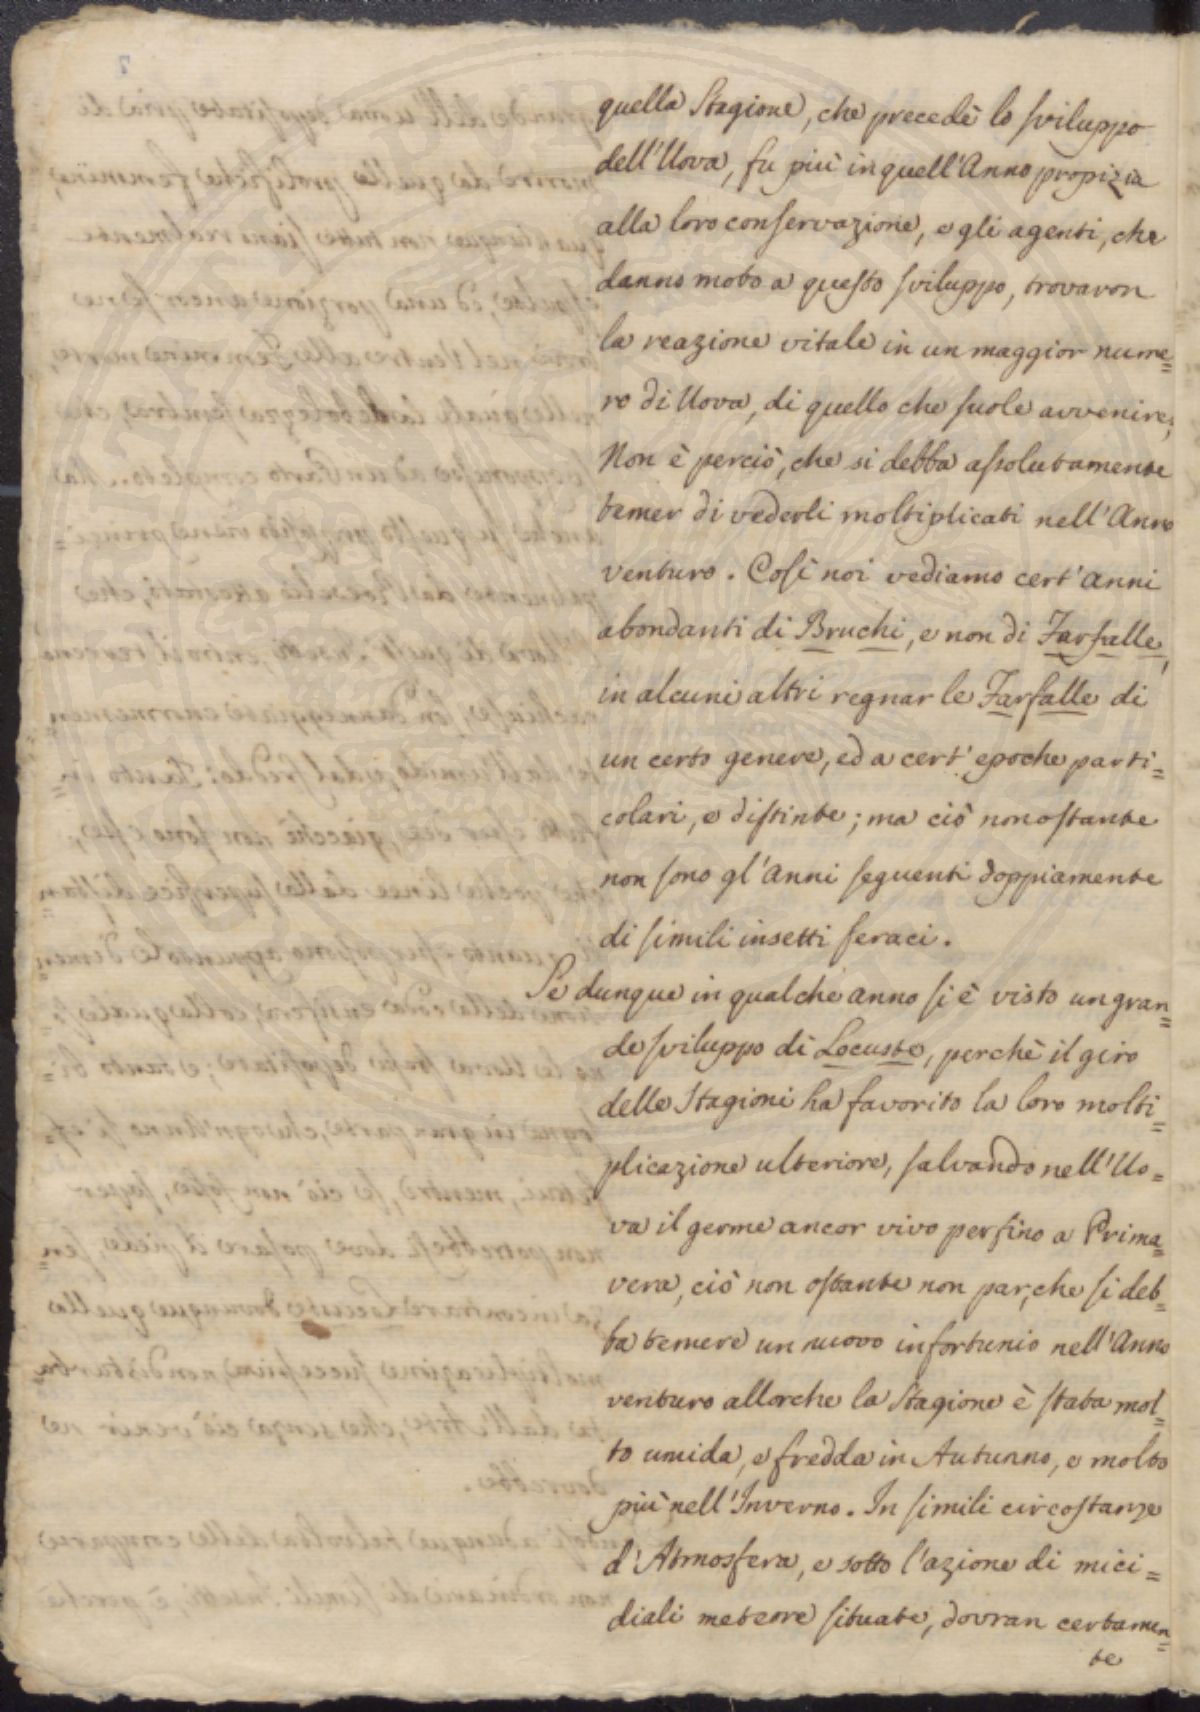 quella Stagione, che precedè lo sviluppo
dell'Uova, fu più in quell'Anno propizia
alla loro conservazione, e gli agenti, che
danno moto a questo sviluppo, trovaron
la reazione vitale in un maggior nume=
ro di Uova, di quello che suole avvenire;
Non è perciò, che si debba assolutamente
temer di vederli moltiplicati nell'Anno
venturo. Così noi vediamo cert'anni
abondanti di Bruchi, e non di Farfalle,
in alcuni altri regnar le Farfalle di
un certo genere, ed a cert'epoche parti=
colari, e distinte; ma ciò nonostante
non sono gl'Anni seguenti doppiamente
di simili insetti feraci.
Se dunque in qualche anno si è visto un gran=
de sviluppo di Locuste, perchè il giro
delle Stagioni ha favorito la loro molti=
plicazione ulteriore, salvando nell'Uo=
va il germe ancor vivo perfino a Prima=
vera, ciò non ostante non par, che si deb=
ba temere un nuovo infortunio nell'Anno
venturo allorche la Stagione è stata mol=
to umida, e fredda in Autunno, e molto
più nell'Inverno. In simili circostanze
d'Atmosfera, e sotto l'azione di mici=
diali meteore situate, dovran certamen=
te